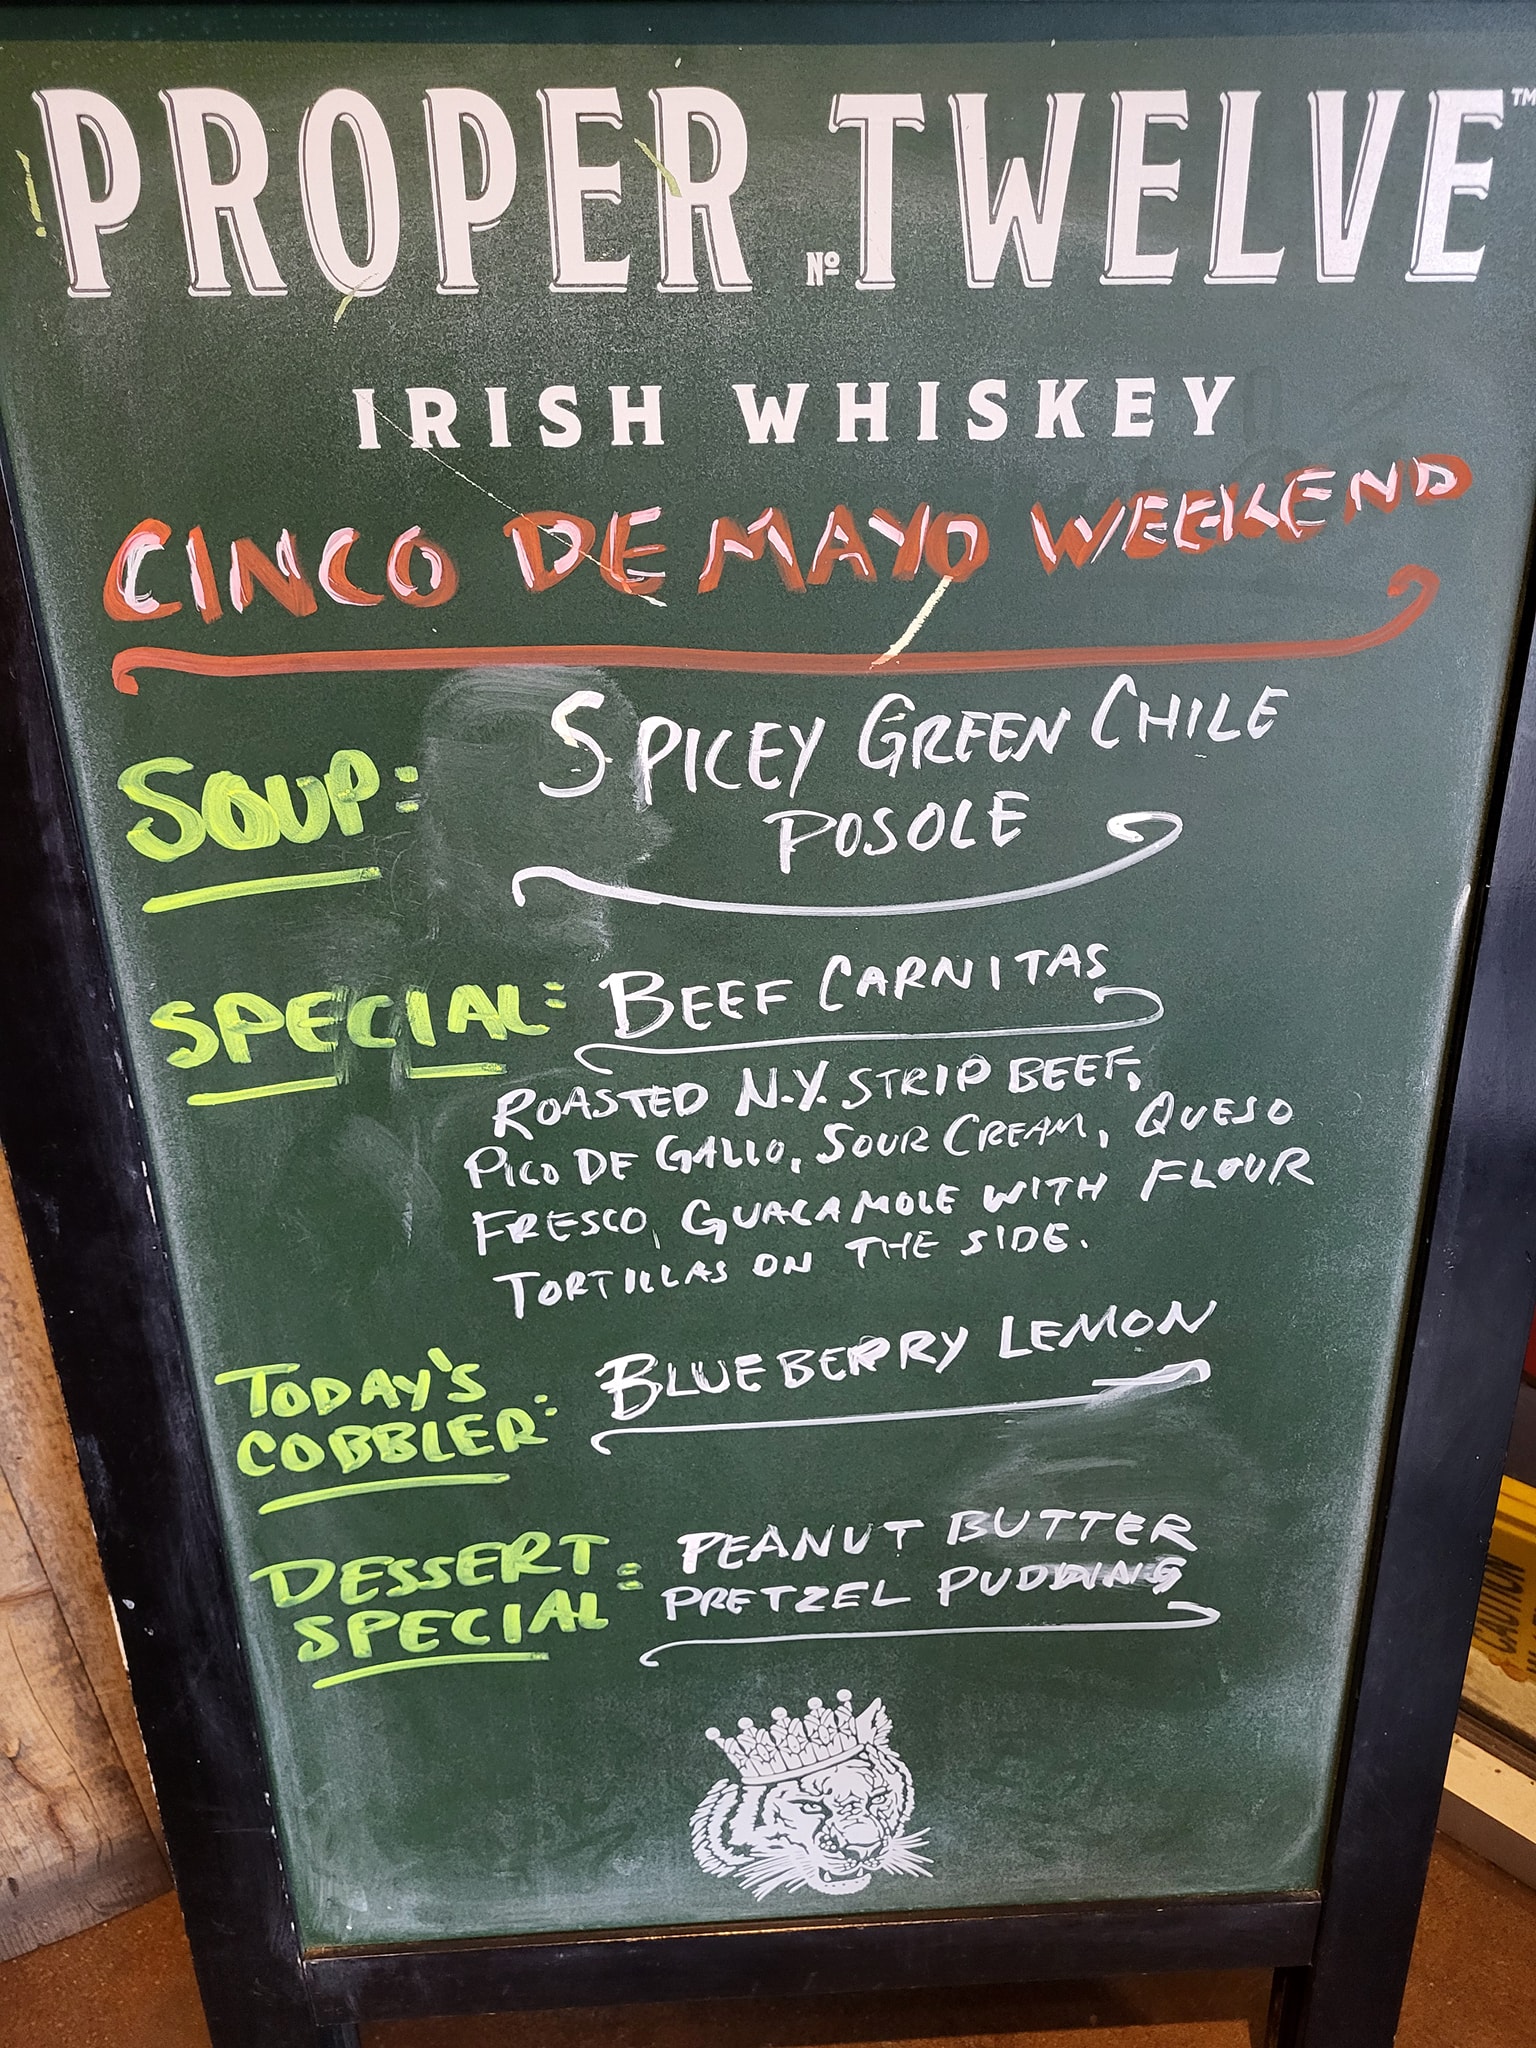 PROPER Nº TWELVE™
IRISH WHISKEY
CINCO DE MAYO WEEKEND
SOUP: SPICEY GREEN CHILE
POSOLE
SPECIAL: BEEF CARNITAS
ROASTED N.Y. STRIP BEEF,
PICO DE GALLO, SOUR CREAM, QUESO
FRESCO, GUACAMOLE WITH FLOUR
TORTILLAS ON THE SIDE.
TODAY'S
COBBLER: BLUEBERRY LEMON
DESSERT
SPECIAL: PEANUT BUTTER
PRETZEL PUDDING
CAUTION